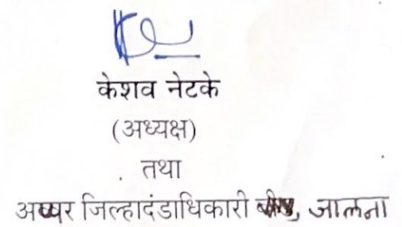 केशव नेटके
(अध्यक्ष)
तथा
अप्पर जिल्हादंडाधिकारी जालना